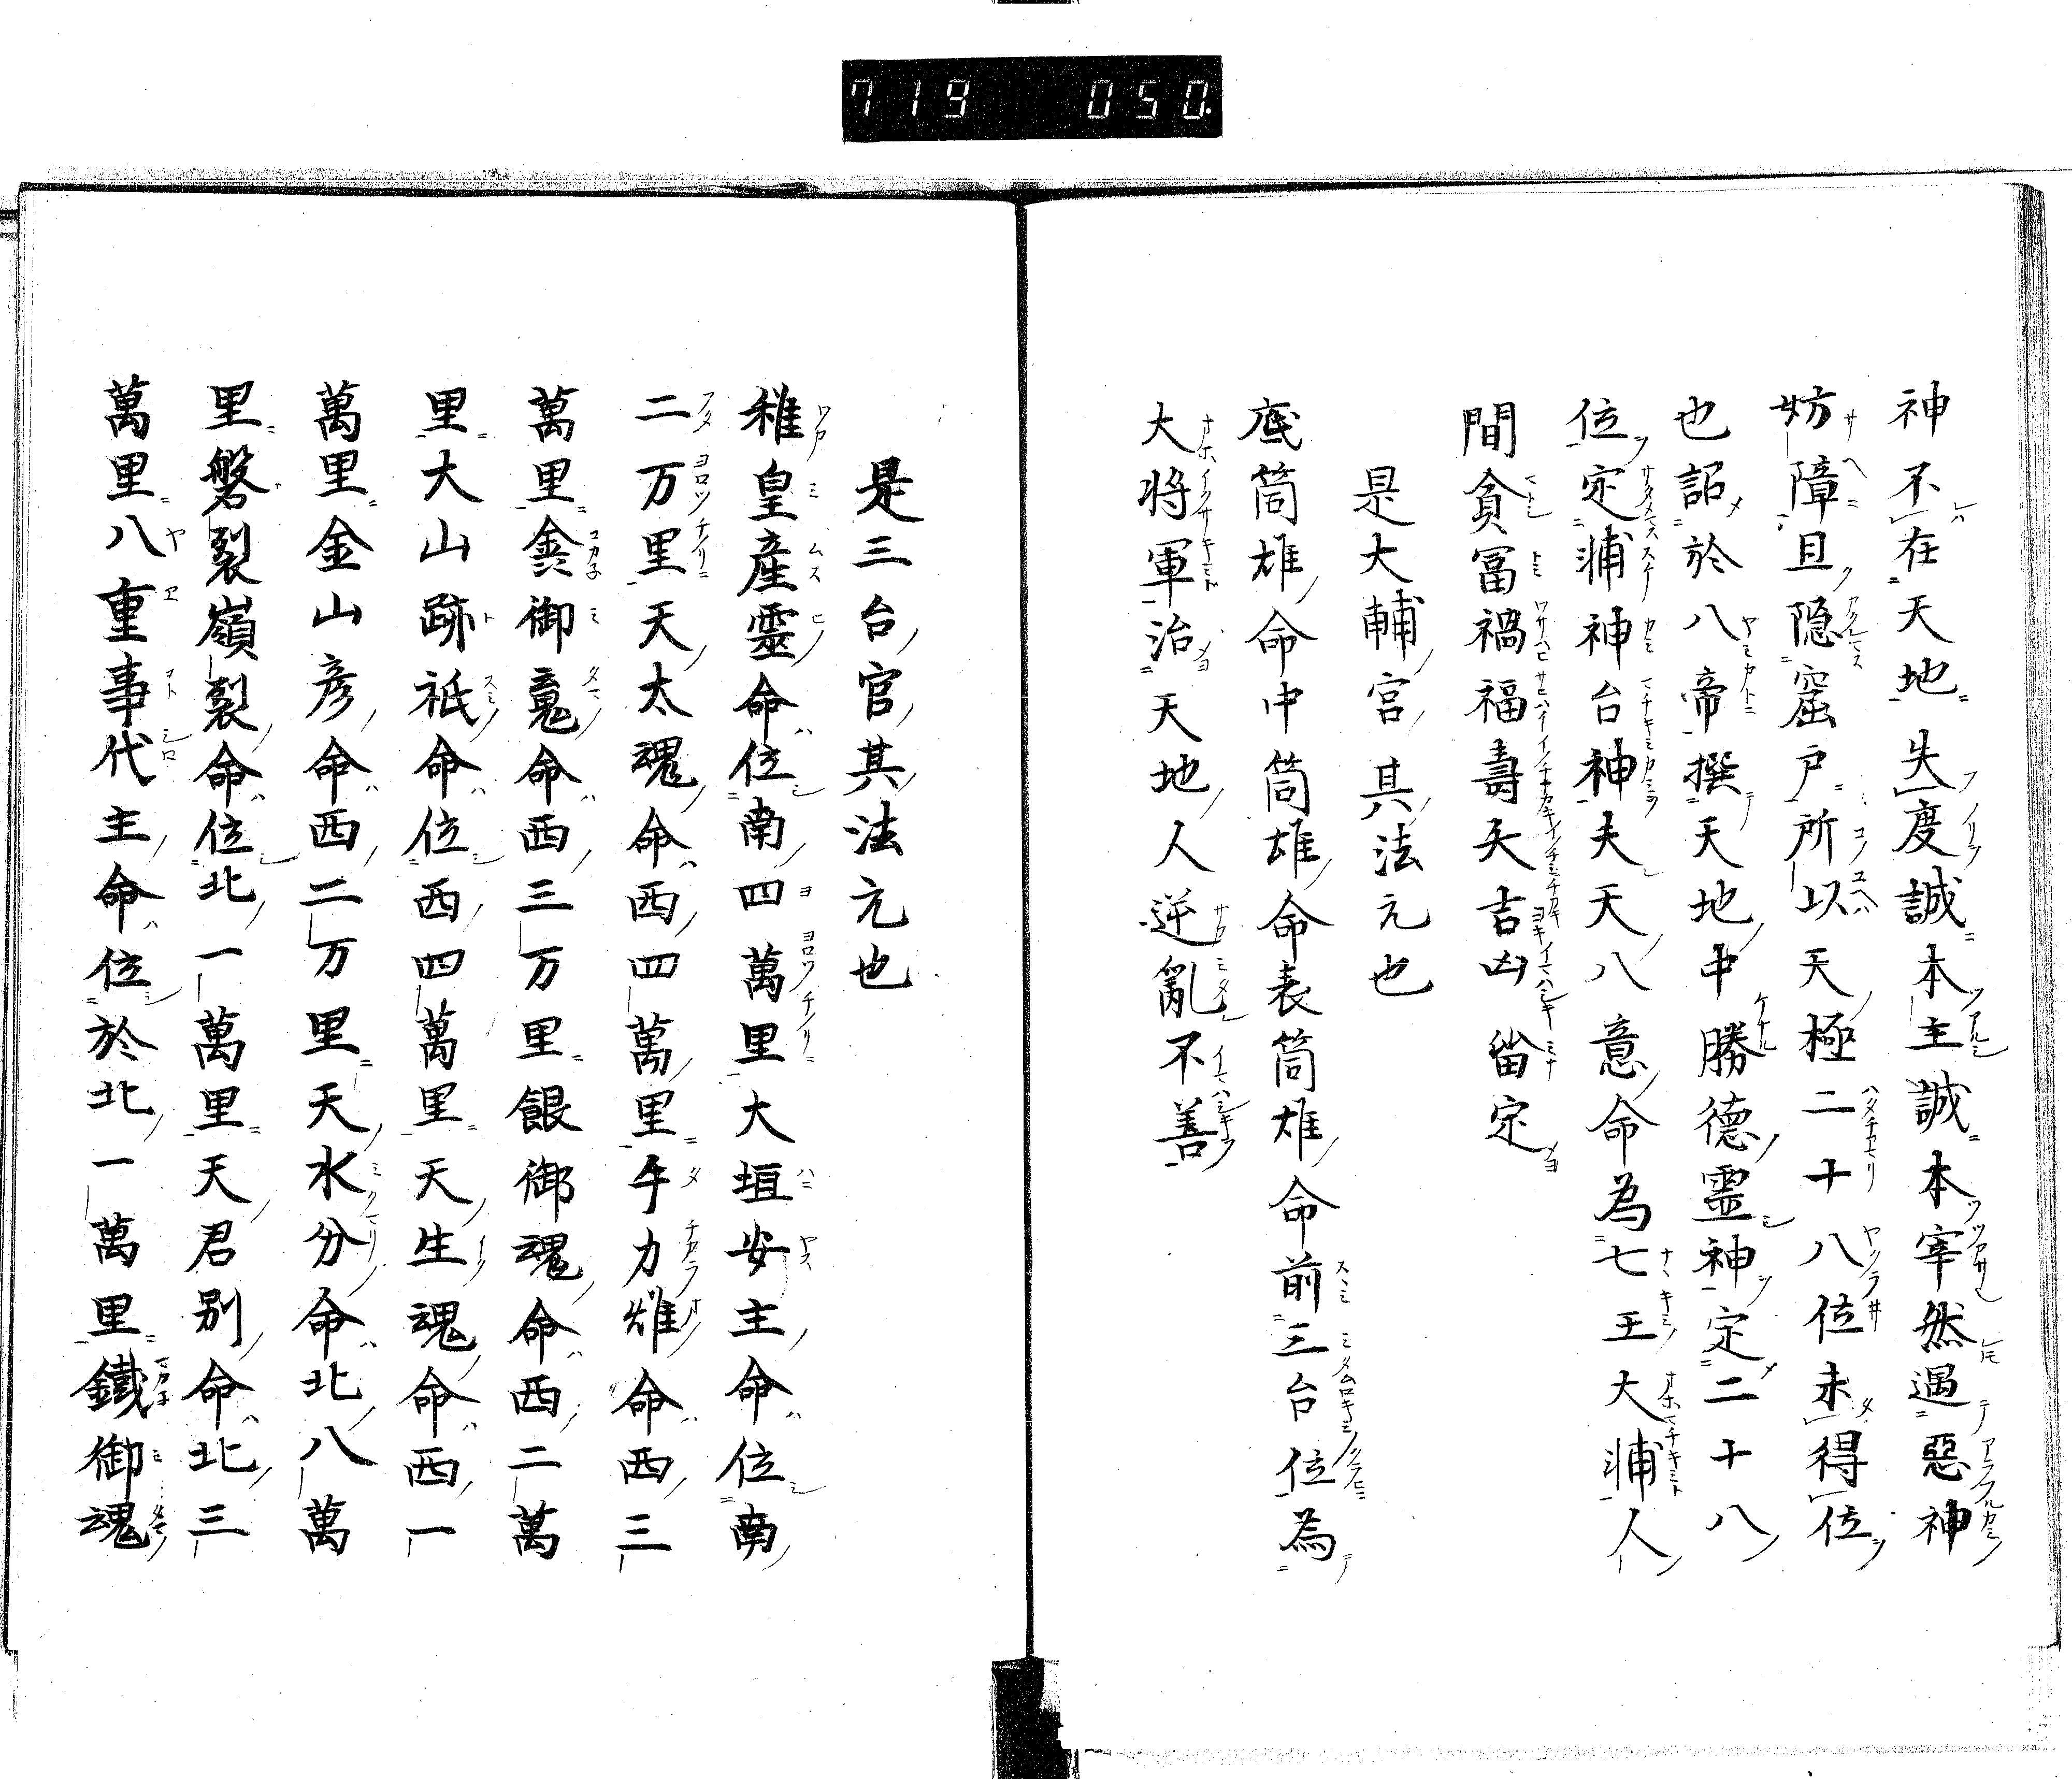 719 050
神不在天地失度誠本主誠本宰然遇惡神
妨障且隠窟戸所以天極二十八位未得位
也詔於八帝撰天地中勝德霊神定二十八
位定浦神台神夫天八意命為七王大浦人
間貪冨禍福壽夭吉凶畄定
是大輔宮其法元也
底筒雄命中筒雄命表筒雄命前三台位為
大将軍治天地人逆亂不善
是三台官其法元也
稚皇產靈命位南四萬里大垣安主命位南
二万里天太魂命西四萬里手力雄命西三
萬里御䰟命西三万里銀御魂命西二萬
里大山跡祇命位西四萬里天生魂命西一
萬里金山彦命西二万里天水分命北八萬
里磐裂嶺裂命位北一萬里天君别命北三
萬里八重事代主命位於北一萬里鐵御魂